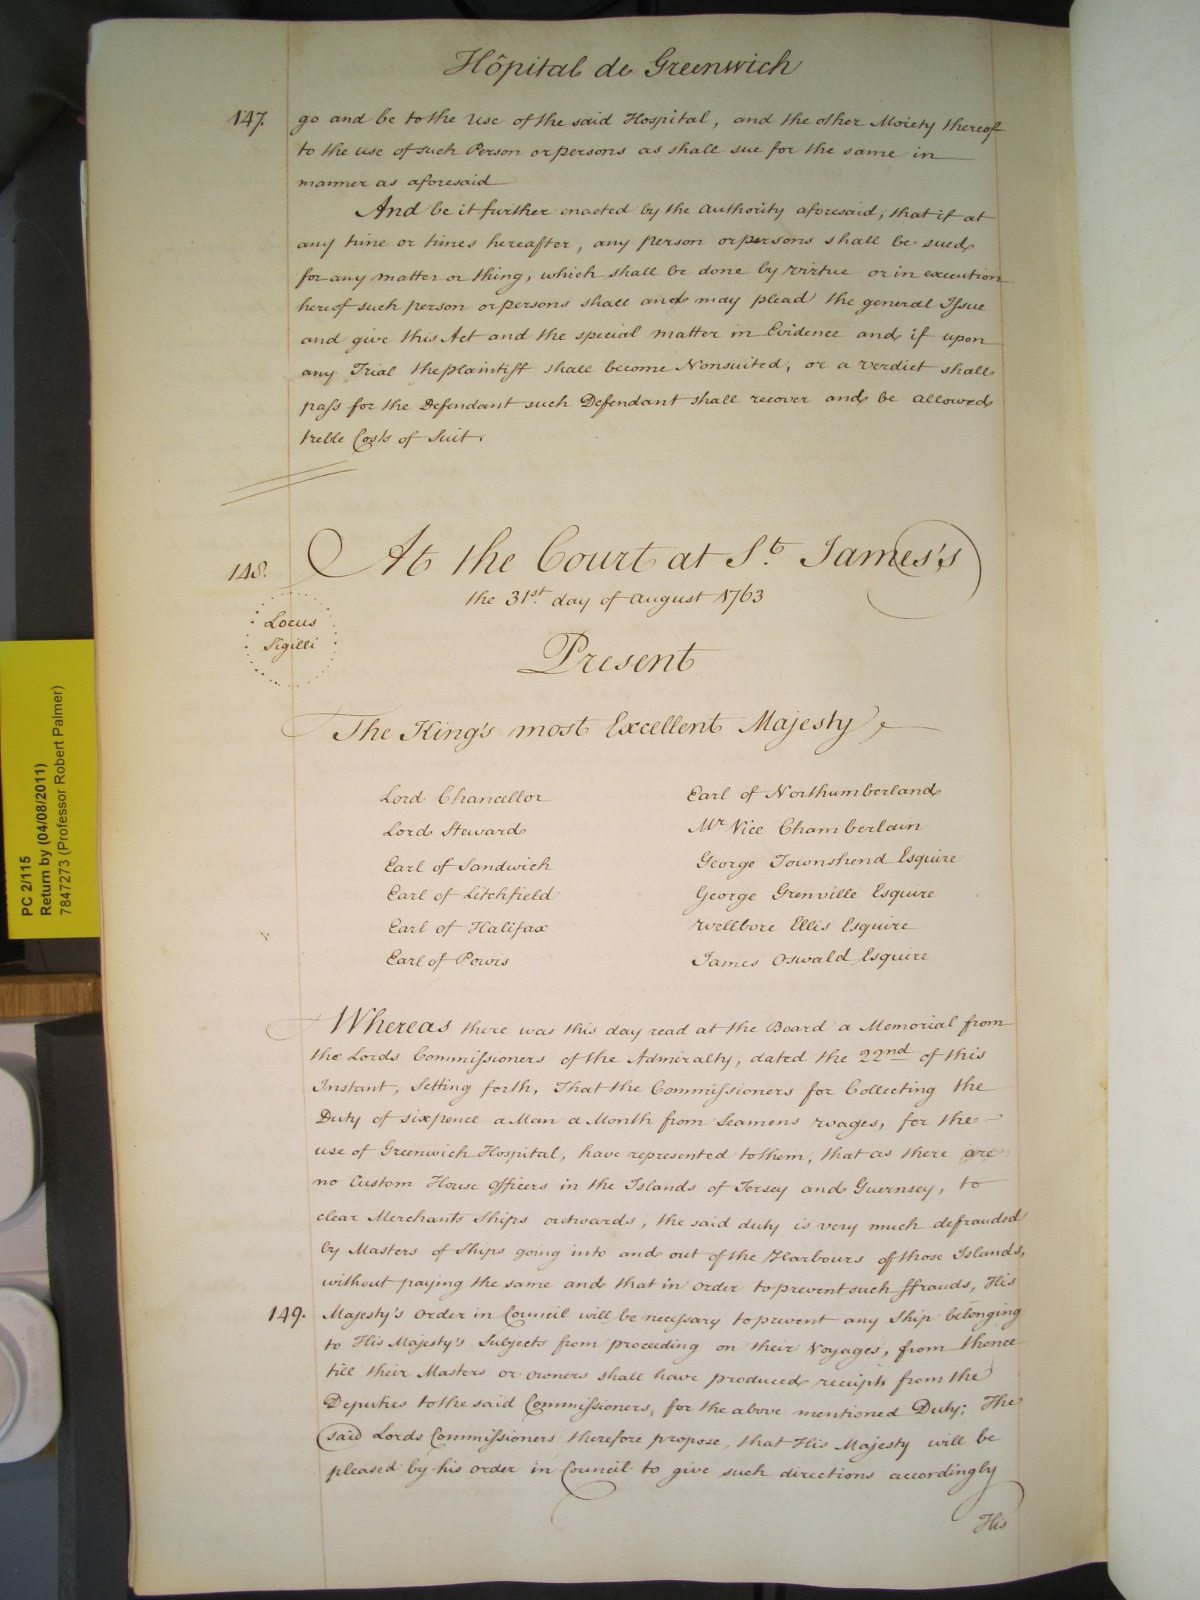 Hôpital de Greenwich
147. go and be to the Use of the said Hospital, and the other Moiety thereof
to the use of such Person or persons as shall sue for the same in
manner as aforesaid
And be it further enacted by the Authority aforesaid, that if at
any time or times hereafter, any person or persons shall be sued
for any matter or thing, which shall be done by virtue or in execution
hereof such person or persons shall and may plead the general Issue
and give this Act and the special matter in Evidence and if upon
any Trial the plaintiff shall become Nonsuited, or a verdict shall
pass for the Defendant such Defendant shall recover and be allowed
treble Costs of Suit.
148. At the Court at St. James's
the 31st. day of August 1763
Locus
Sigilli
Present
The King's most Excellent Majesty
Lord Chancellor
Lord Steward
Earl of Sandwich
Earl of Litchfield
Earl of Halifax
Earl of Powis
Earl of Northumberland
Mr Vice Chamberlain
George Townshend Esquire
George Grenville Esquire
Wellbore Ellis Esquire
James Oswald Esquire
Whereas there was this day read at the Board a Memorial from
the Lords Commissioners of the Admiralty, dated the 22nd of this
Instant, Setting forth, That the Commissioners for Collecting the
Duty of sixpence a Man a Month from Seamens wages, for the
use of Greenwich Hospital, have represented to them, that as there are
no Custom House officers in the Islands of Jersey and Guernsey, to
clear Merchants Ships outwards, the said duty is very much defrauded
by Masters of Ships going into and out of the Harbours of those Islands,
without paying the same and that in order to prevent such ffrauds, His
149. Majesty's Order in Council will be necessary to prevent any Ship belonging
to His Majesty's Subjects from proceeding on their Voyages, from thence
till their Masters or owners shall have produced receipts from the
Deputies to the said Commissioners, for the above mentioned Duty; The
said Lords Commissioners therefore propose, that His Majesty will be
pleased by his order in Council to give such directions accordingly
His
PC 2/115
Return by (04/08/2011)
7847273 (Professor Robert Palmer)